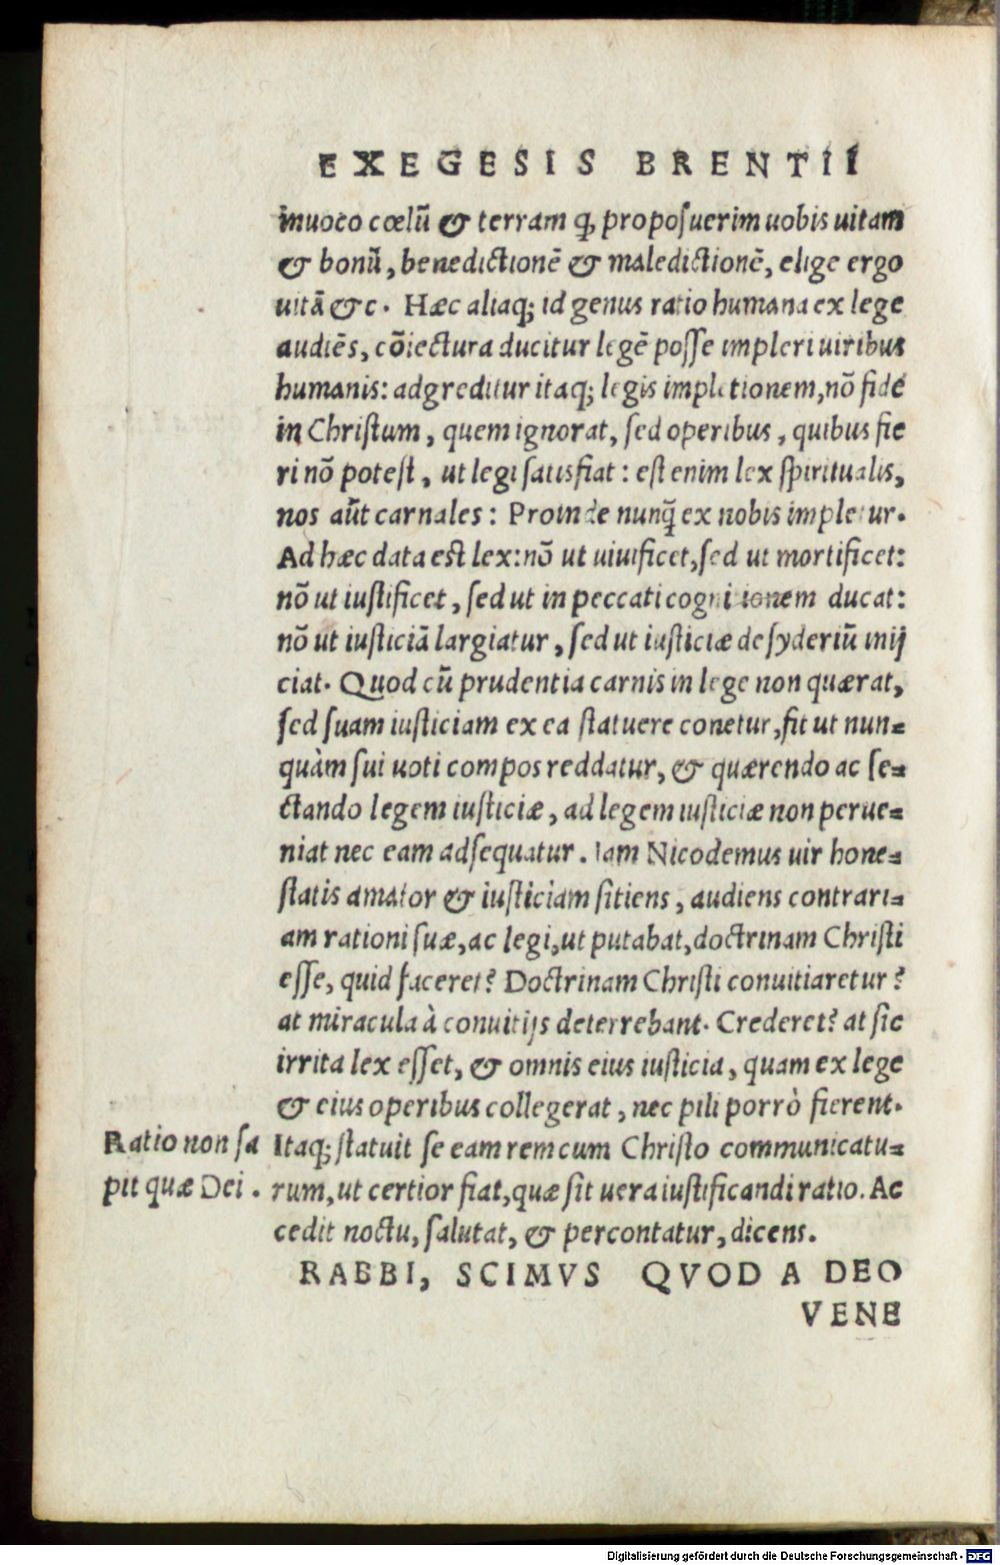 EXEGESIS BRENTII
inuoco cœlũ & terram ꝙ, proposuerim uobis uitam
& bonũ, benedictionẽ & maledictionẽ, elige ergo
uitã &c. Hæc aliaq; id genus ratio humana ex lege
audiẽs, cõiectura ducitur legẽ posse impleri uiribus
humanis: adgreditur itaq; legis impletionem, nõ fide
in Christum, quem ignorat, sed operibus, quibus fie
ri nõ potest, ut legi satisfiat: est enim lex spiritualis,
nos aũt carnales: Proinde nunq̃ ex nobis impletur.
Ad hæc data est lex: nõ ut uiuificet, sed ut mortificet:
nõ ut iustificet, sed ut in peccati cognitionem ducat:
nõ ut iusticiã largiatur, sed ut iusticiæ desyderiũ inij
ciat. Quod cũ prudentia carnis in lege non quærat,
sed suam iusticiam ex ea statuere conetur, fit ut nun-
quàm sui uoti compos reddatur, & quærendo ac se-
ctando legem iusticiæ, ad legem iusticiæ non perue-
niat nec eam adsequatur. Iam Nicodemus uir hone-
statis amator & iusticiam sitiens, audiens contrari-
am rationi suæ, ac legi, ut putabat, doctrinam Christi
esse, quid faceret? Doctrinam Christi conuitiaretur?
at miracula à conuitijs deterrebant. Crederet? at sic
irrita lex esset, & omnis eius iusticia, quam ex lege
& eius operibus collegerat, nec pili porrò fierent.
Ratio non sa
pit quæ Dei.
Itaq; statuit se eam rem cum Christo communicatu-
rum, ut certior fiat, quæ sit uera iustificandi ratio. Ac
cedit noctu, salutat, & percontatur, dicens.
RABBI, SCIMVS QVOD A DEO
VENE
Digitalisierung gefördert durch die Deutsche Forschungsgemeinschaft - DFG